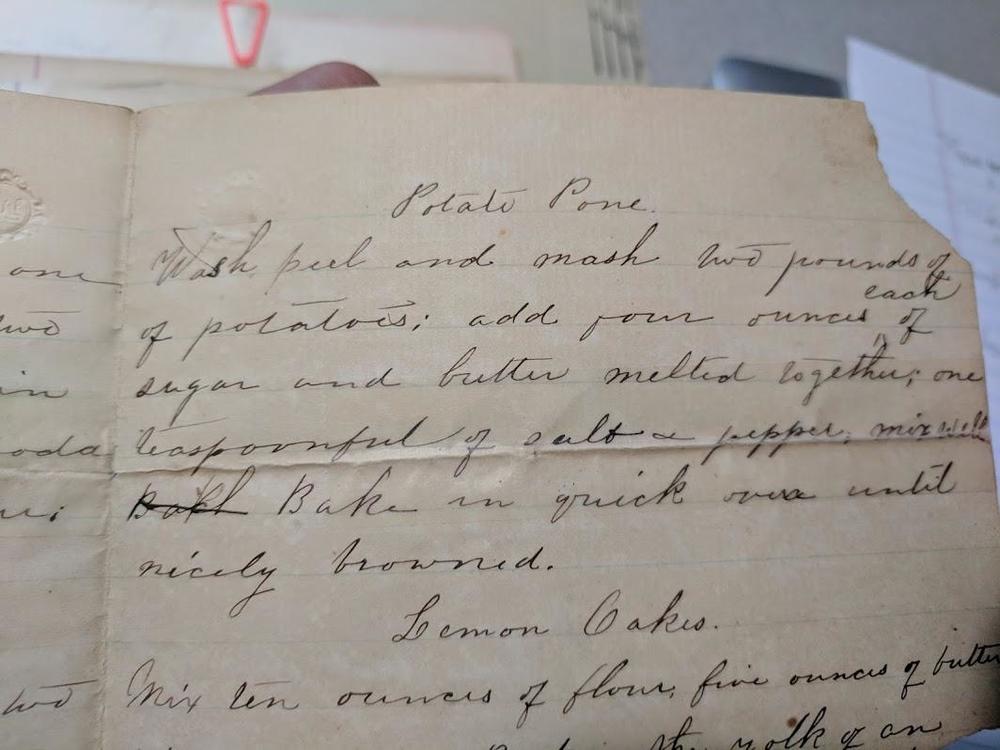 Potato Pone.
one
Wash, peel and mash two pounds of
each
two
of potatoes; add four ounces ^ of
in
sugar and butter melted together; one
oda
teaspoonful of salt & pepper; mix well
Bake in quick oven until
nicely browned.
Lemon Cakes.
two
Mix ten ounces of flour, five ounces of butter
the yolk of an